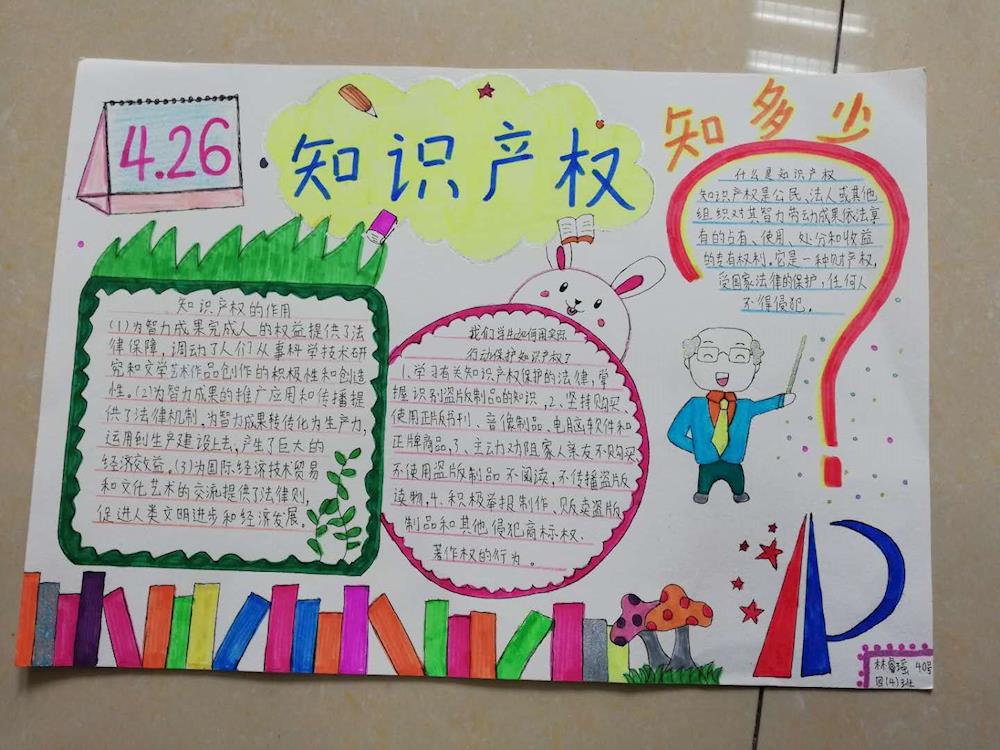 4.26
知识产权
知多少
什么是知识产权
知识产权是公民、法人或其他
组织对其智力劳动成果依法享
有的占有、使用、处分和收益
的专有权利。它是一种财产权,
受国家法律的保护,任何人
不得侵犯。
知识产权的作用
(1)为智力成果完成人的权益提供了法
律保障,调动了人们从事科学技术研
究和文学艺术作品创作的积极性和创造
性。(2)为智力成果的推广应用和传播提
供了法律机制,为智力成果转传化为生产力,
运用到生产建设上去,产生了巨大的
经济效益。(3)为国际经济技术贸易
和文化艺术的交流提供了法律则,
促进人类文明进步和经济发展。
我们学生如何用实际
行动保护知识产权?
1、学习有关知识产权保护的法律,掌
握识别盗版制品的知识,2、坚持购买、
使用正版书刊、音像制品、电脑软件和
正牌商品,3、主动力劝阻家人亲友不购买、
不使用盗版制品不阅读,不传播盗版
读物,4、积极举报制作、贩卖盗版
制品和其他侵犯商标权、
著作权的行为。
林睿瑶 40号
四(4)班